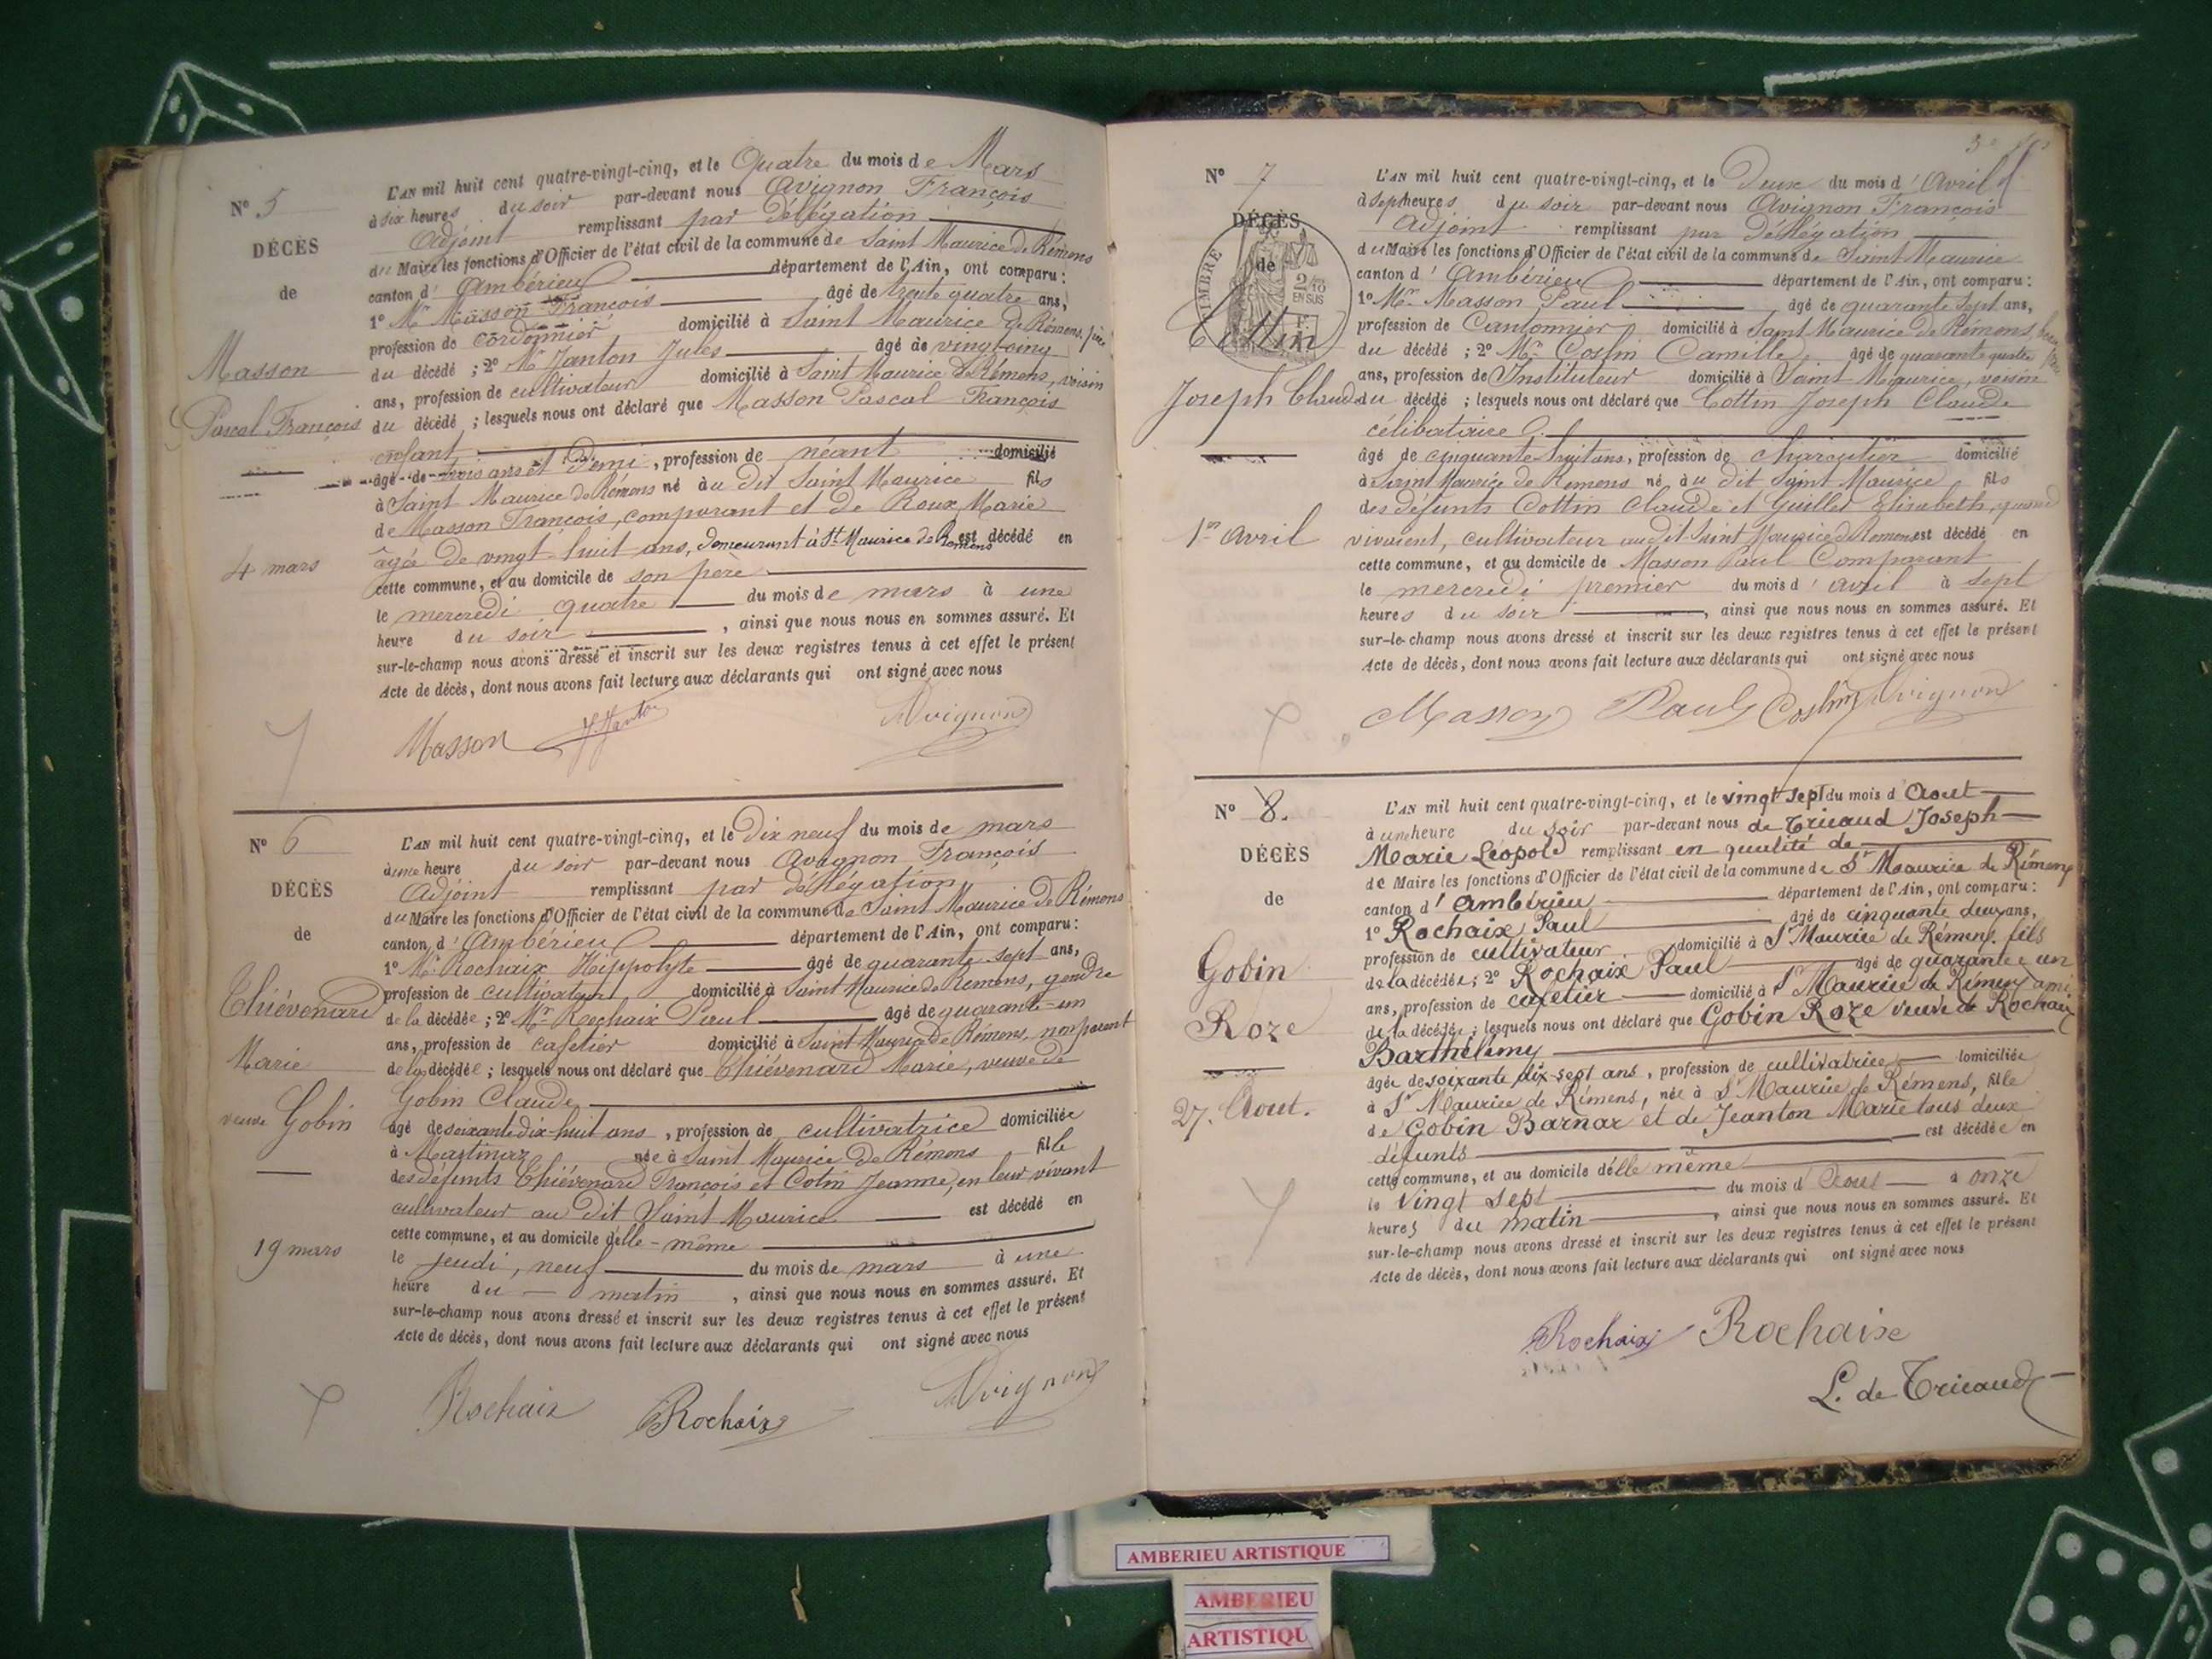 N° 5
DÉCÈS
de
Masson
Pascal François
4 mars
L'AN mil huit cent quatre-vingt-cinq, et le Quatre du mois de Mars
à six heures du soir par-devant nous Avignon François
Adjoint remplissant par délégation
du Maire les fonctions d'Officier de l'état civil de la commune de Saint Maurice de Rémens
canton d'Ambérieu département de l'Ain, ont comparu :
1° Mr Masson François âgé de trente quatre ans,
profession de cordonnier domicilié à Saint Maurice de Rémens, père
du décédé ; 2° Mr Janton Jules âgé de vingt cinq
ans, profession de cultivateur domicilié à Saint Maurice de Rémens, voisin
du décédé ; lesquels nous ont déclaré que Masson Pascal François
enfant
âgé de trois ans et demi, profession de néant domicilié
à Saint Maurice de Rémens né au dit Saint Maurice fils
de Masson François, comparant et de Roux Marie
âgée de vingt-huit ans, demeurant à St. Maurice de Remens est décédé en
cette commune, et au domicile de son père
le mercredi quatre du mois de mars à une
heure du soir, ainsi que nous nous en sommes assuré. Et
sur-le-champ nous avons dressé et inscrit sur les deux registres tenus à cet effet le présent
Acte de décès, dont nous avons fait lecture aux déclarants qui ont signé avec nous
Masson J. Janton Avignon
N° 6
DÉCÈS
de
Thiévenard
Marie
veuve Gobin
19 mars
L'AN mil huit cent quatre-vingt-cinq, et le Dix neuf du mois de mars
à une heure du soir par-devant nous Avignon François
Adjoint remplissant par délégation
du Maire les fonctions d'Officier de l'état civil de la commune de Saint Maurice de Rémens
canton d'Ambérieu département de l'Ain, ont comparu :
1° Mr Rochaix Hippolyte âgé de quarante sept ans,
profession de cultivateur domicilié à Saint Maurice de Remens, gendre
de la décédée ; 2° Mr Rochaix Paul âgé de quarante-un
ans, profession de cafetier domicilié à Saint Maurice de Rémens, non parent
de la décédée ; lesquels nous ont déclaré que Thiévenard Marie, veuve de
Gobin Claude
âgé de soixante dix-huit ans, profession de cultivatrice domiciliée
à Martinaz née à Saint Maurice de Rémens fille
des défunts Thiévenard François et Cotin Jeanne, en leur vivant
cultivateur au dit Saint Maurice est décédé en
cette commune, et au domicile d'elle-même
le jeudi, neuf du mois de mars à une
heure du matin, ainsi que nous nous en sommes assuré. Et
sur-le-champ nous avons dressé et inscrit sur les deux registres tenus à cet effet le présent
Acte de décès, dont nous avons fait lecture aux déclarants qui ont signé avec nous
Rochaix Rochaix Avignon
N° 7
DÉCÈS
de
TIMBRE
2/10
EN SUS
Cottin
Joseph Claude
1er avril
L'AN mil huit cent quatre-vingt-cinq, et le Deux du mois d'Avril
à sept heures du soir par-devant nous Avignon François
Adjoint remplissant par délégation
du Maire les fonctions d'Officier de l'état civil de la commune de Saint Maurice
canton d'Ambérieu département de l'Ain, ont comparu :
1° Mr Masson Paul âgé de quarante sept ans,
profession de Cantonnier domicilié à Saint Maurice de Rémens,
du décédé ; 2° Mr Coslin Camille âgé de quarante quatre
ans, profession de Instituteur domicilié à Saint Maurice, voisin
du décédé ; lesquels nous ont déclaré que Cottin Joseph Claude
célibataire
âgé de cinquante-huit ans, profession de charcutier domicilié
à Saint Maurice de Remens né au dit Saint Maurice fils
des défunts Cottin Claude et Guillet Elisabeth, quand
vivaient, cultivateur audit Saint Maurice de Remens est décédé en
cette commune, et au domicile de Masson Paul Comparant
le mercredi premier du mois d'avril à sept
heures du soir, ainsi que nous nous en sommes assuré. Et
sur-le-champ nous avons dressé et inscrit sur les deux registres tenus à cet effet le présent
Acte de décès, dont nous avons fait lecture aux déclarants qui ont signé avec nous
Masson Paul Coslin Avignon
N° 8.
DÉCÈS
de
Gobin
Roze
27. Aout.
L'AN mil huit cent quatre-vingt-cinq, et le vingt sept du mois d'Aout
à une heure du soir par-devant nous de Tricaud Joseph
Marie Léopold remplissant en qualité de
de Maire les fonctions d'Officier de l'état civil de la commune de St Maurice de Rémens
canton d'Ambérieu département de l'Ain, ont comparu :
1° Rochaix Paul âgé de cinquante deux ans,
profession de cultivateur domicilié à St Maurice de Rémens. fils
de la décédée ; 2° Rochaix Paul âgé de quarante e un
ans, profession de cafetier domicilié à St Maurice de Rémens ami
de la décédée ; lesquels nous ont déclaré que Gobin Roze veuve de Rochaix
Barthélémy
âgée de soixante dix-sept ans, profession de cultivatrice domiciliée
à St Maurice de Rémens, née à St Maurice de Rémens, fille
de Gobin Barnar et de Jeanton Marie tous deux
défunts est décédée en
cette commune, et au domicile d'elle même
le vingt sept du mois d'Aout à onze
heures du matin, ainsi que nous nous en sommes assuré. Et
sur-le-champ nous avons dressé et inscrit sur les deux registres tenus à cet effet le présent
Acte de décès, dont nous avons fait lecture aux déclarants qui ont signé avec nous
Rochaix Rochaix
L. de Tricaud
AMBERIEU ARTISTIQUE
AMBERIEU
ARTISTIQU